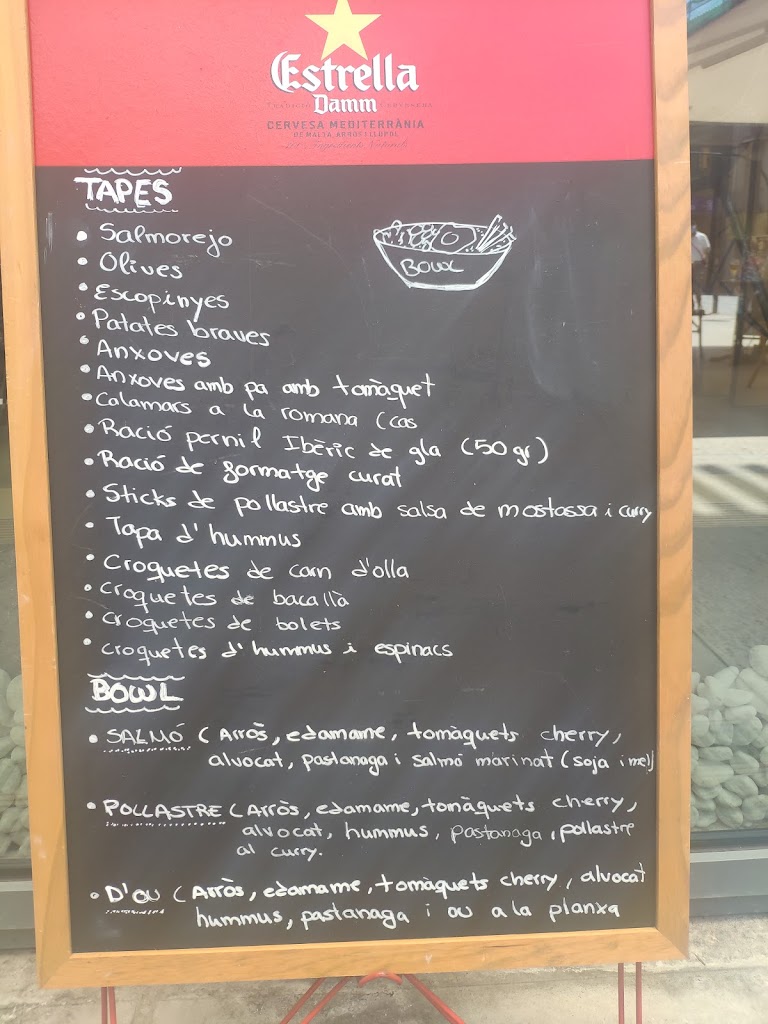 Estrella
Damm
CERVESA MEDITERRÀNIA
DE MALTA, ARRÒS I LLÚPOL
TAPES
BOWL
• Salmorejo
• Olives
• Escopinyes
• Patates braves
• Anxoves
• Anxoves amb pa amb tomàquet
• Calamars a la romana (cas
• Ració pernil Ibèric de gla (50 gr)
• Ració de formatge curat
• Sticks de pollastre amb salsa de mostassa i curry
• Tapa d'hummus
• Croquetes de carn d'olla
• croquetes de bacallà
• croquetes de bolets
• croquetes d'hummus i espinacs
BOWL
• SALMÓ (Arròs, edamame, tomàquets cherry,
alvocat, pastanaga i salmó marinat (soja i mel)
• POLLASTRE (Arròs, edamame, tomàquets cherry,
alvocat, hummus, pastanaga, pollastre
al curry.
• D'OU (Arròs, edamame, tomàquets cherry, alvocat
hummus, pastanaga i ou a la planxa